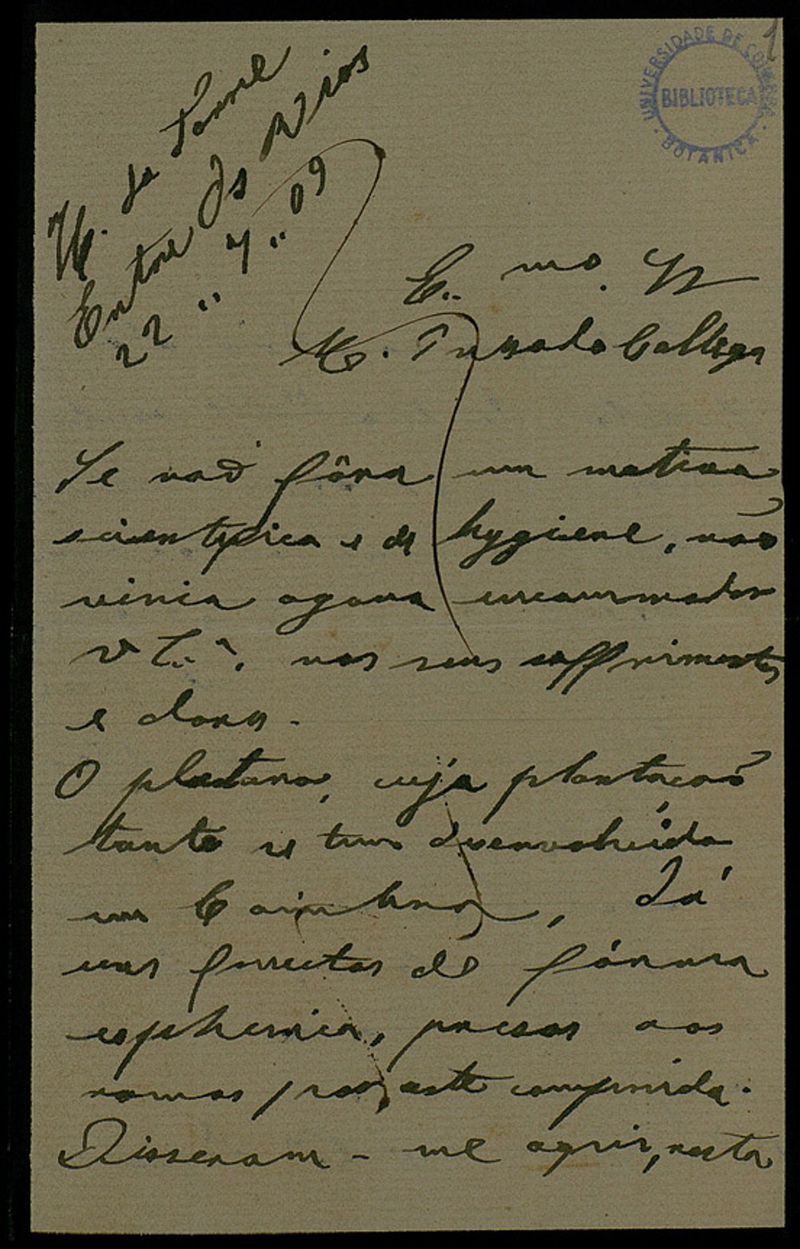 UNIVERSIDADE DE COIMBRA
BIBLIOTECA
BOTANICA
1
H. da Torre
Entre os Rios
22 " 7 " 09
E.. mo. Sr
Se naõ fôra um motivo
scientifica e de hygiene, não
viria agora incommodar
V E..ª. nos seus soffrimentos
e dores.
O platano, cuja plantacaõ
tanto se tem desenvolvido
em Coimbra, dá
uns fructos de fórma
espherica, presos aos
ramos por, aste comprida.
Disseram-me aqui, nesta